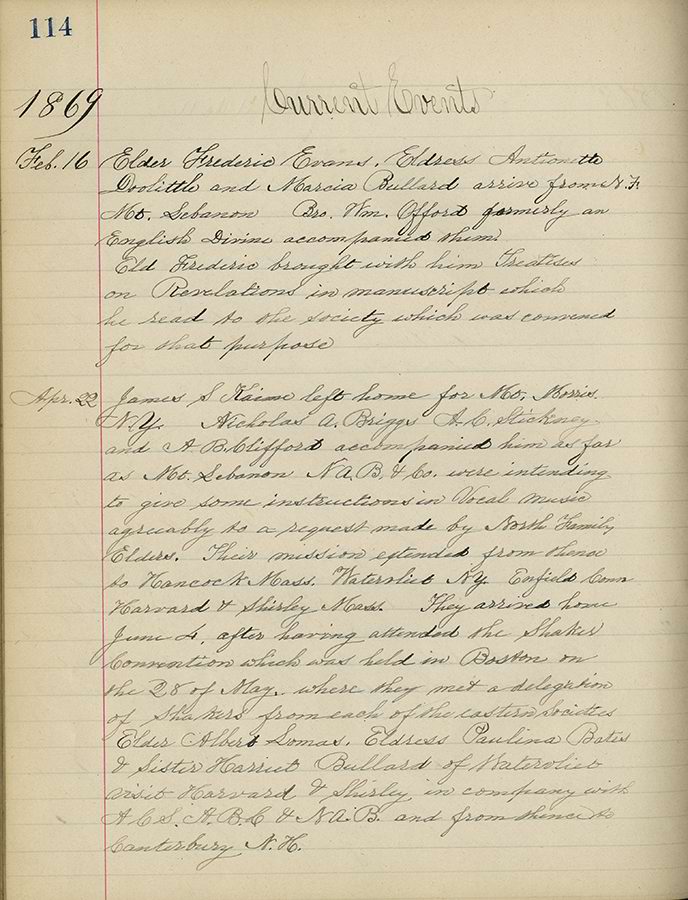 114
Current Events
1869
Feb. 16 Elder Frederic Evans, Eldress Antionette
Doolittle and Marcia Bullard arrive from N. F.
Mt. Lebanon Bro. Wm. Offord formerly an
English Divine accompanied them.
Eld Frederic brought with him Treatises
on Revelations in manuscript which
he read to the society which was convened
for that purpose
Apr. 22 James S Kaime left home for Mt. Morris.
N.Y. Nicholas A. Briggs A. C. Stickney
and A. B. Clifford accompanied him as far
as Mt. Lebanon N A. B. & Co. were intending
to give some instructions in Vocal music
agreuably to a request made by North Family
Elders. Their mission extended from thence
to Hancock Mass. Watervliet NY. Enfield Conn
Harvard & Shirley Mass. They arrived home
June 4, after having attended the Shaker
Convention which was held in Boston on
the 28 of May, where they met a delegation
of Shakers from each of the eastern Societies
Elder Albert Lomas, Eldress Paulina Bates
& Sister Harriet Bullard of Watervliet
visit Harvard & Shirley in company with
A C S. A. B. C & N A. B. and from thence to
Canterbury N. H.